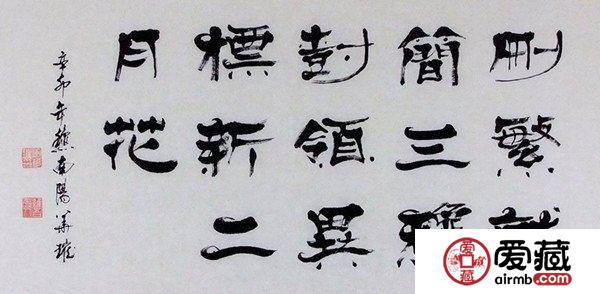 刪繁就
簡三
尌領異
標新二
月花
辛卯年南陽
爱藏
爱藏
airmb.com